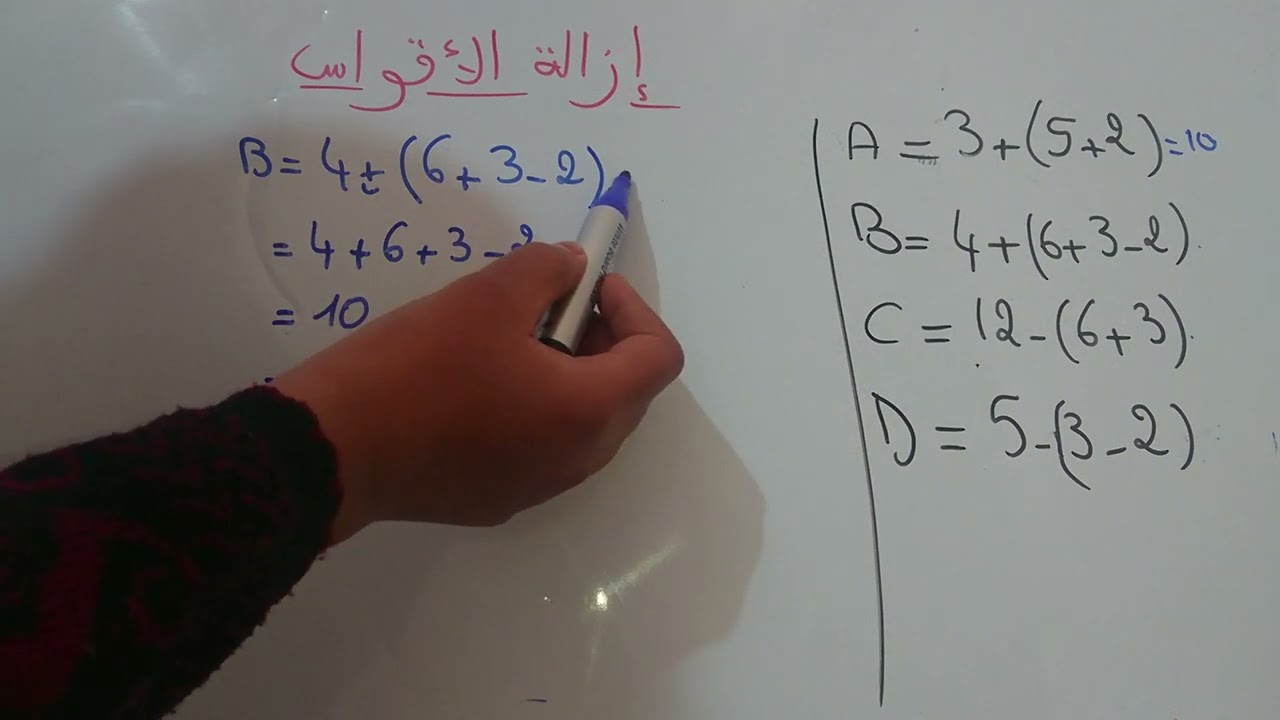 إزالة الأقواس
B = 4 + (6 + 3 - 2)
= 4 + 6 + 3 - 2
= 10
A = 3 + (5 + 2) = 10
B = 4 + (6 + 3 - 2).
C = 12 - (6 + 3).
D = 5 - (3 - 2)